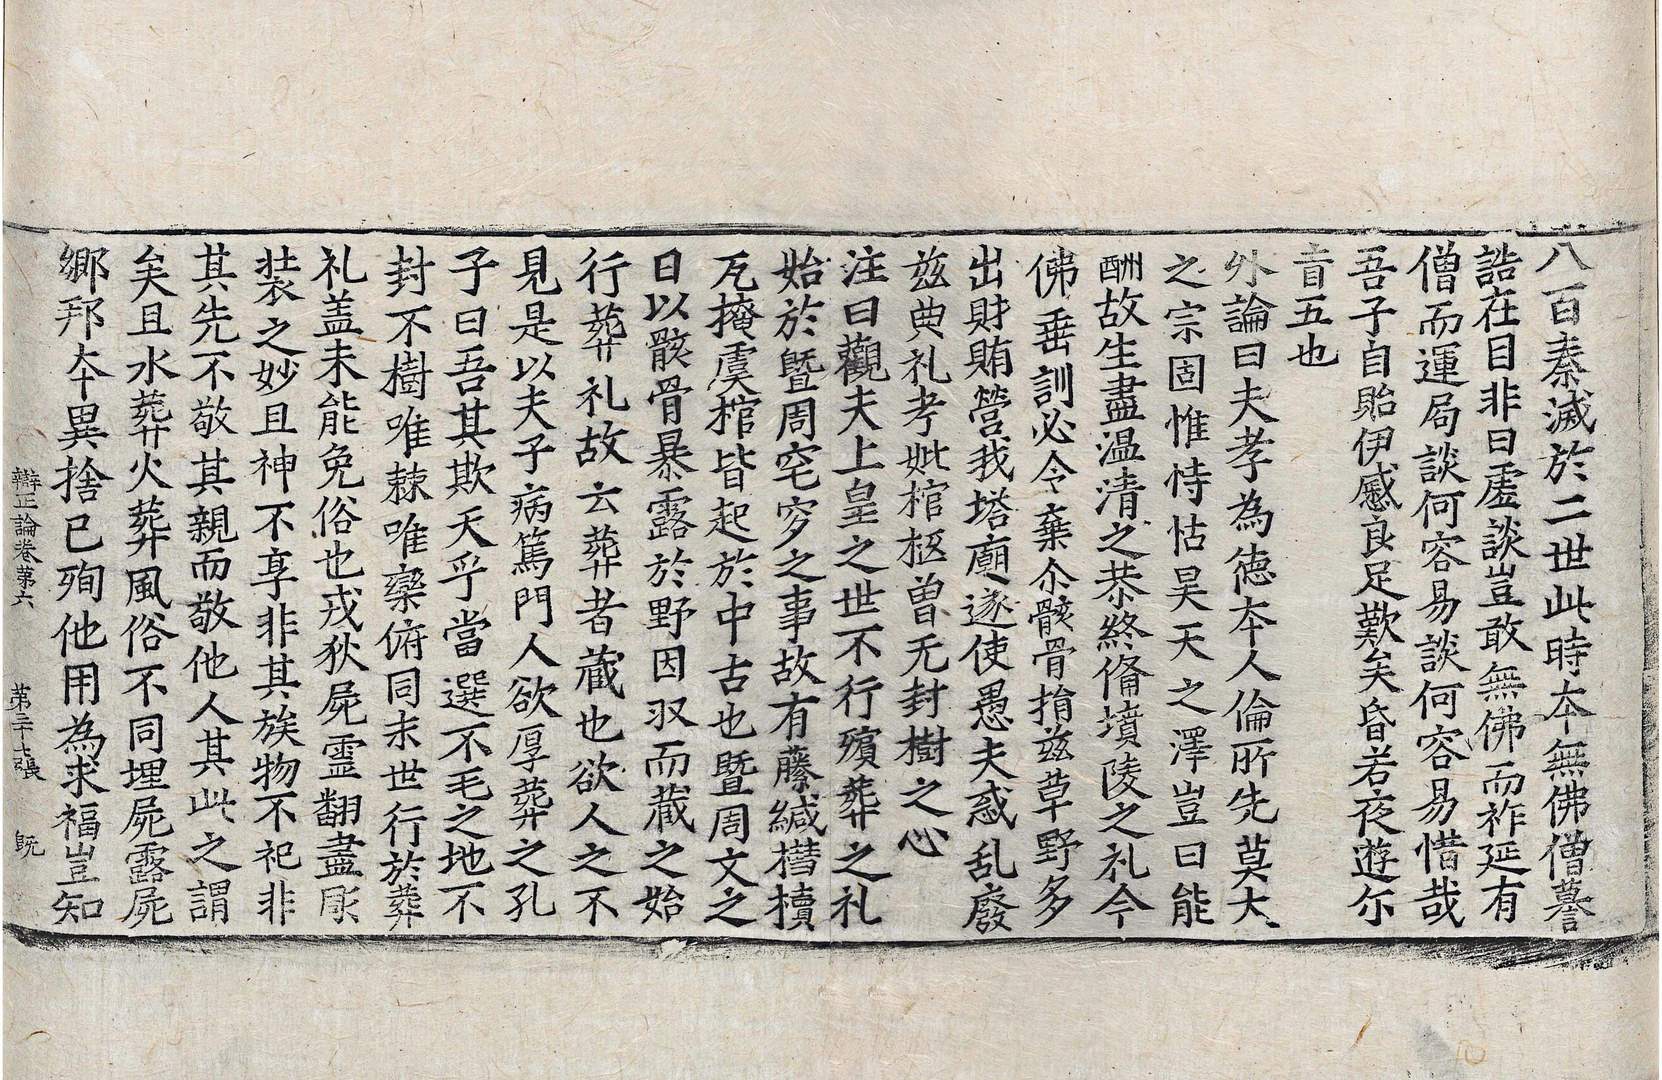 八百秦滅於二世此時夲無佛僧諅
誥在目非曰虛談豈敢無佛而祚延有
僧而運局談何容易談何容易惜哉
吾子自貽伊慼良足歎矣昏若夜遊尓
盲五也
外論曰夫孝為德夲人倫所先莫大
之宗固惟恃怙昊天之澤豈曰能
酬故生盡温清之恭終俻墳陵之礼今
佛垂訓必令棄尒骸骨捐兹草野多
出財賄營我塔廟遂使愚夫惑乱廢
兹典礼考妣棺柩曽无封樹之心
注曰觀夫上皇之世不行殯葬之礼
始於暨周窀穸之事故有藤緘槥櫝
瓦掩虞棺皆起於中古也暨周文之
日以骸骨暴露於野因収而蔵之始
行葬礼故云葬者蔵也欲人之不
見是以夫子病篤門人欲厚葬之孔
子曰吾其欺天乎當選不毛之地不
封不樹唯棘唯欒俯同末世行於葬
礼盖未能免俗也戎狄屍霊翻盡彫
装之妙且神不享非其族物不祀非
其先不敬其親而敬他人其此之謂
矣且水葬火葬風俗不同埋屍露屍
鄉邦夲異捨已殉他用為求福豈知
辯正論卷第六 第二十七張 旣